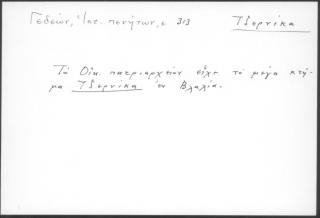 Γεδεών, Ἱστ. πενήτων, σ 313 Τζερνίκα
Τὸ Οἰκ. πατριαρχεῖον εἶχε τὸ μέγα κτῆ-
μα Τζερνίκα ἐν Βλαχίᾳ.